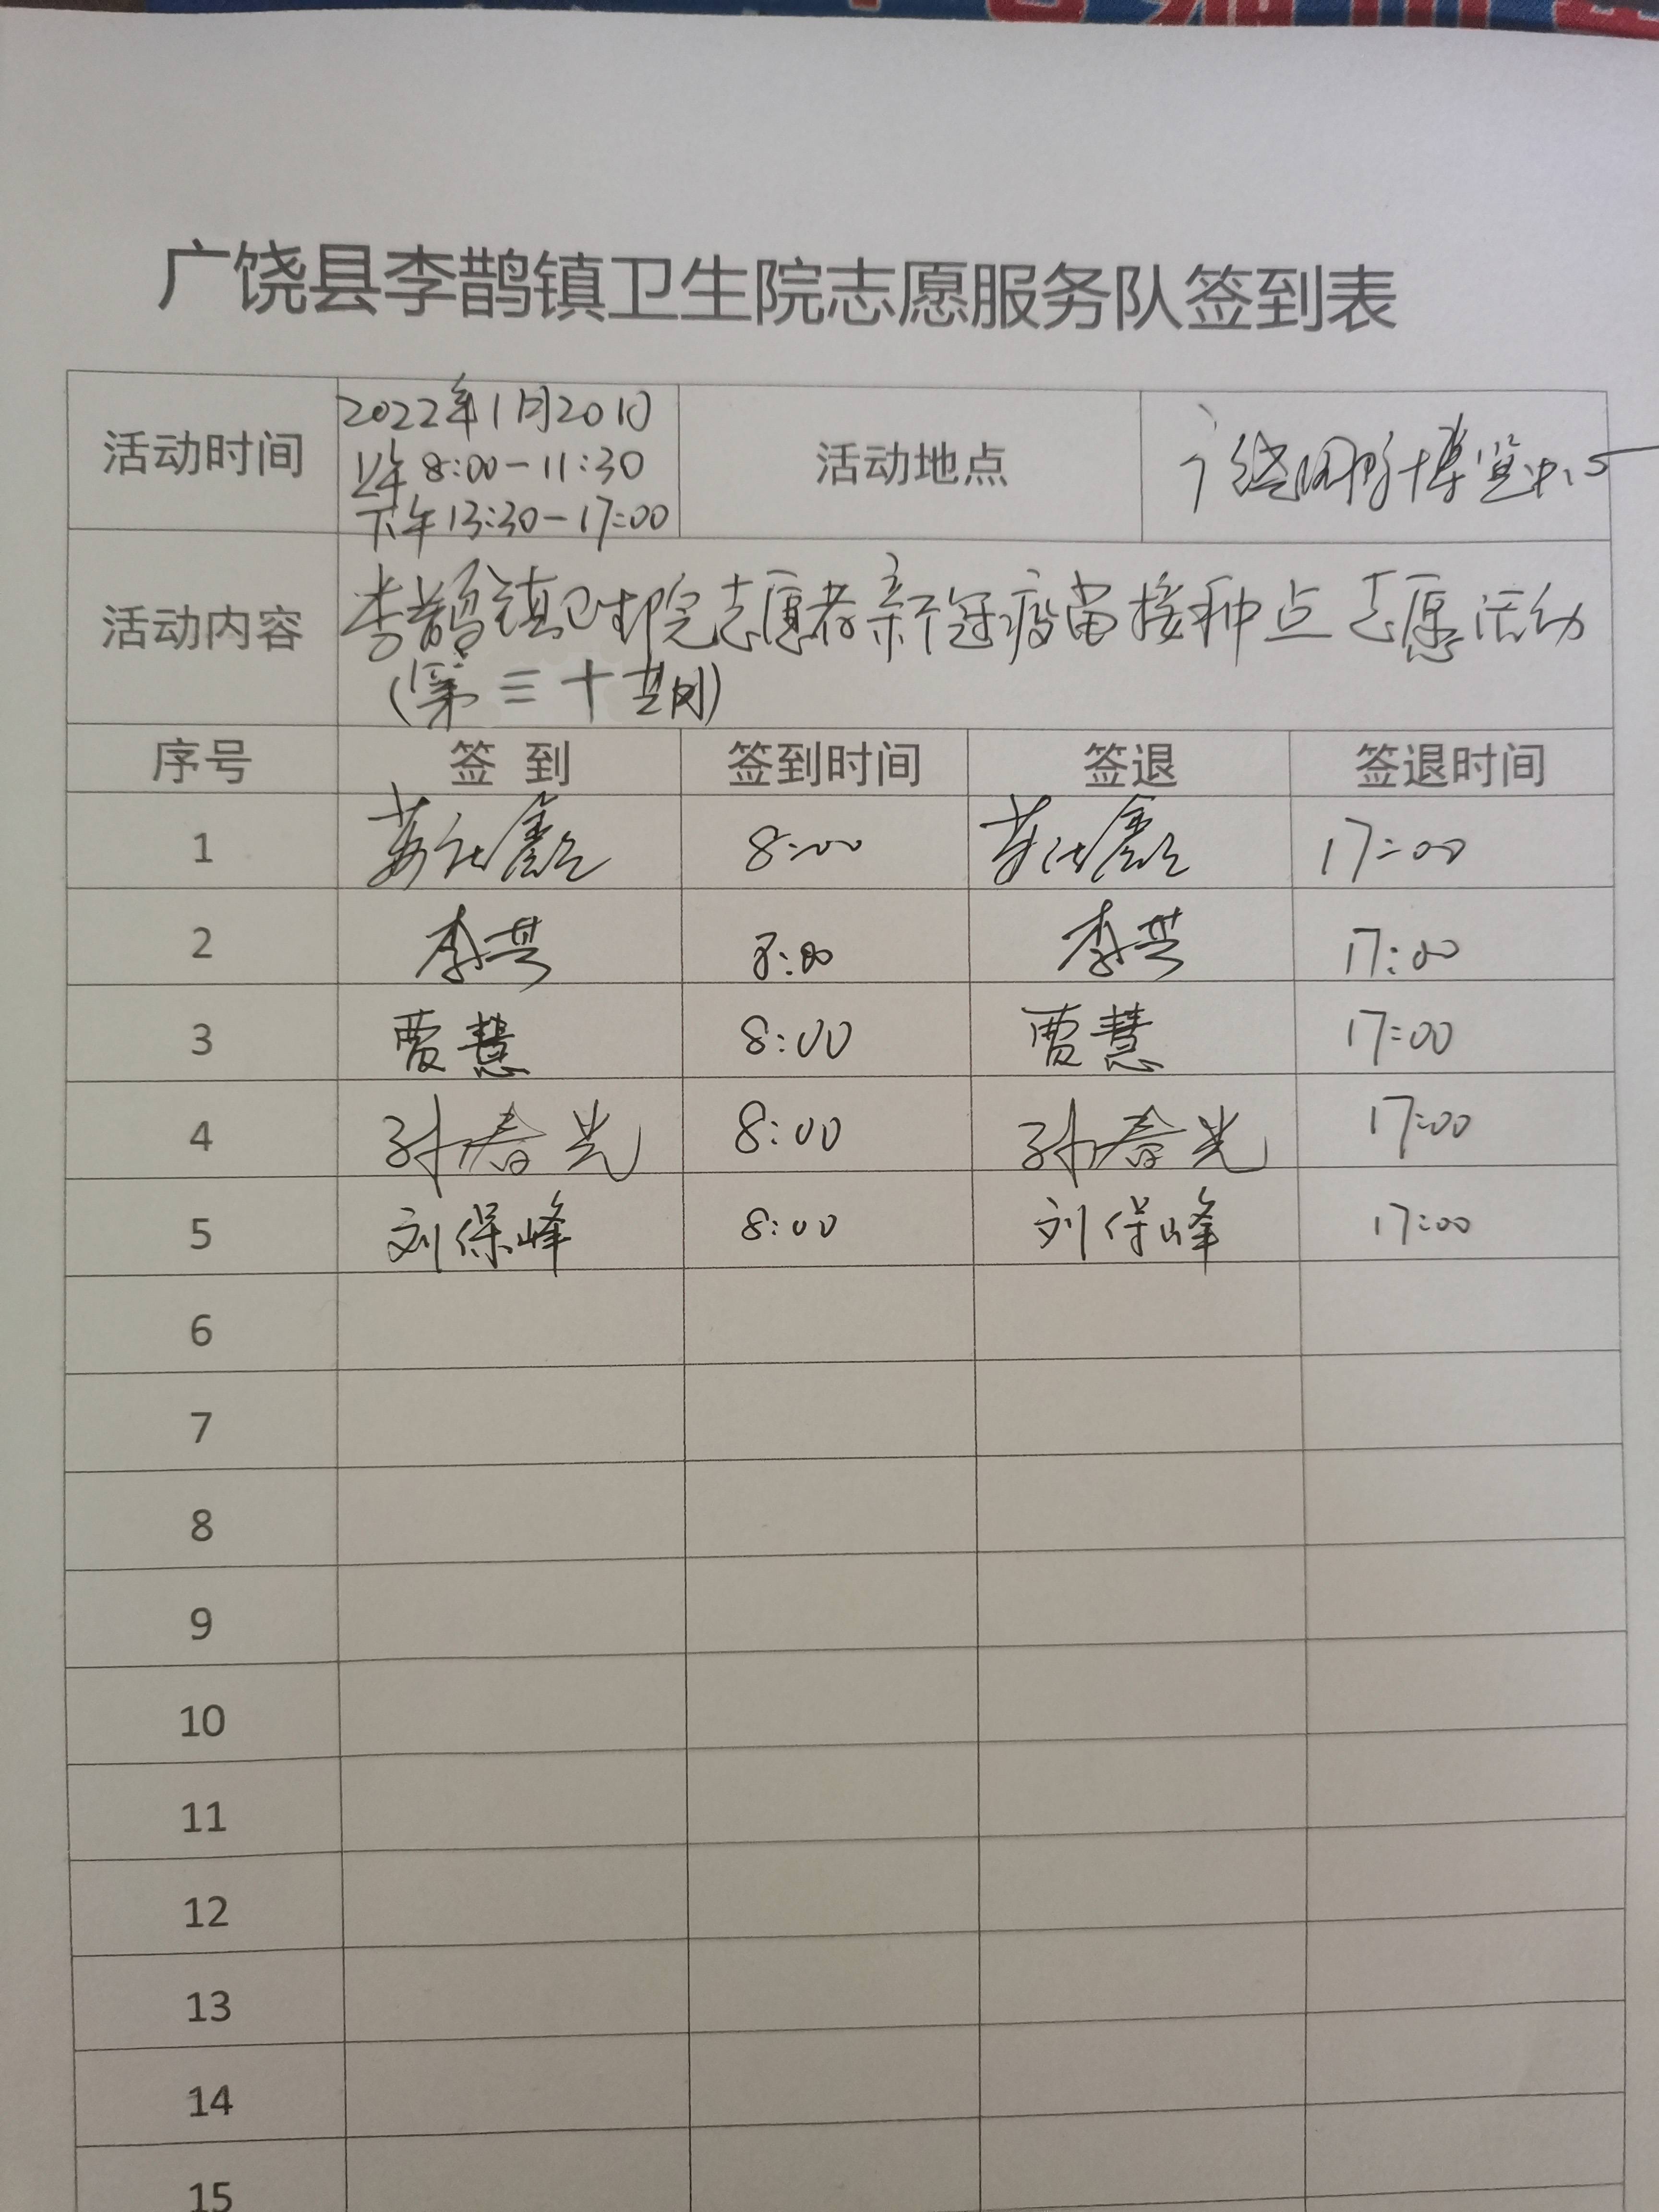 广饶县李鹊镇卫生院志愿服务队签到表
活动时间 2022年1月20日 上午 8:00-11:30 下午 13:30-17:00 活动地点 广饶国际博览中心
活动内容 李鹊镇卫生院志愿者新冠疫苗接种点志愿活动
(第三十七期)
序号 签到 签到时间 签退 签退时间
1 8:00 17:00
2 8:00 17:00
3 贾慧 8:00 贾慧 17:00
4 孙春光 8:00 孙春光 17:00
5 刘保峰 8:00 刘保峰 17:00
6
7
8
9
10
11
12
13
14
15